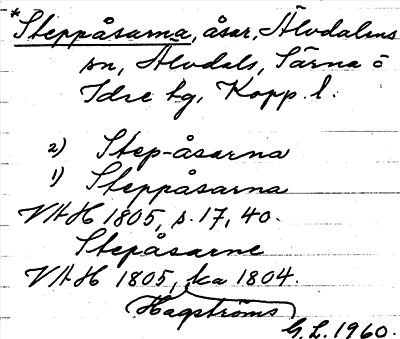 *Steppåsarna, åsar, Älvdalens
sn, Älvdals, Särna o
Idre tg, Kopp. l.
2) Step-åsarna
1) Steppåsarna
VAH 1805, s. 17, 40.
Stepåsarne
VAH 1805, ka 1804.
Hagströms
G.L. 1960.